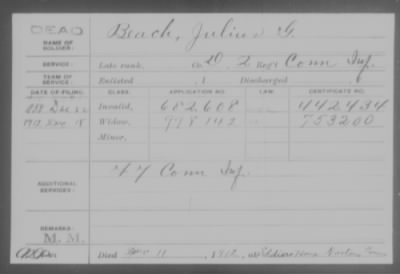 DEAD
NAME OF SOLDIER: Beach, Julius G.
SERVICE: Late rank, Co. D, 2 Reg't Conn Inf.
TERM OF SERVICE: Enlisted , 1 Discharged , 1
DATE OF FILING. CLASS. APPLICATION NO. LAW. CERTIFICATE NO.
Dec Invalid, 682608 442434
1912 18 Widow, 998142 753200
Minor,
ADDITIONAL SERVICES: 27 Conn Inf.
REMARKS:
M. M.
Died 11, 1912, at Soldiers Home Noroton Conn